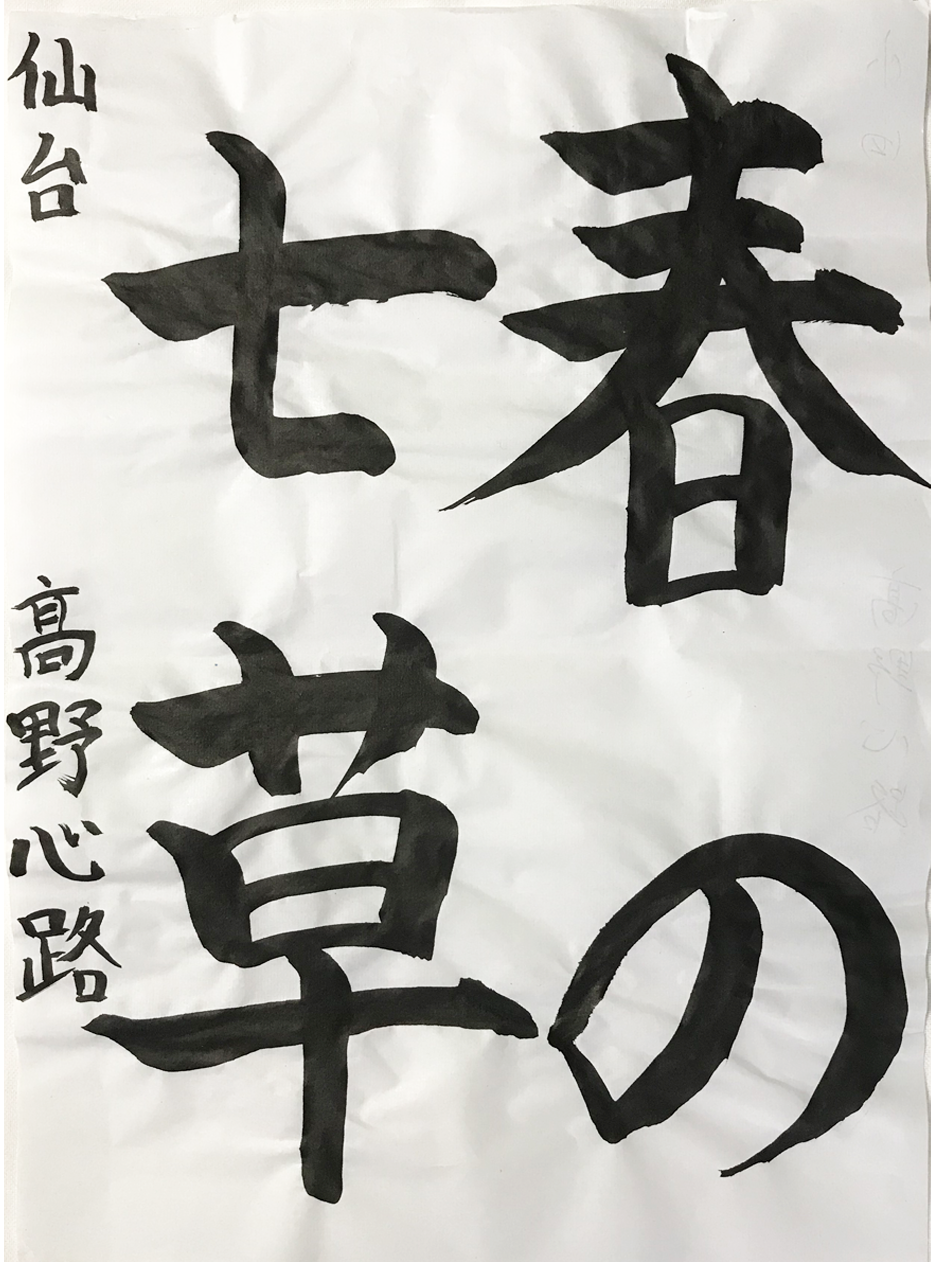 春の
七草
仙台 高野心路